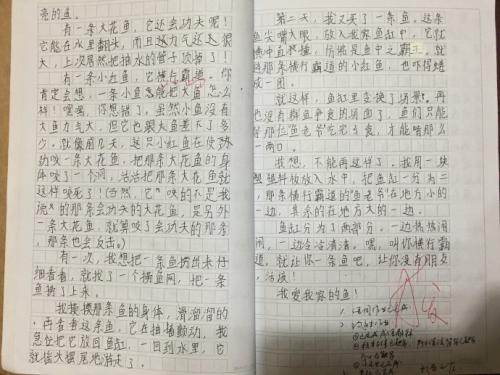 亮的鱼。
有一条大花鱼，它还会功夫呢！
它能在水里翻头，而且力气还很
大，上次居然把抽水的管子顶掉了！
有一条小红鱼，它横行霸道。你
肯定会想，一条小鱼怎能把大鱼怎么
样！嘿嘿，你想错了。虽然小鱼没有
大鱼力气大，但它也把大鱼
少。就像前几天，这只小红鱼在使劲
咬一条大花鱼，把那条大花鱼的身
体咬了一个洞，活活把那条大花鱼就
这样咬死了！（当然，它咬的不是我
说的那条会功夫的大花鱼，是另外
一条大花鱼，就算咬了会功夫的那条
，那条也会反击。）
有一次，我想把一条鱼捞出来仔
细看看，就找了一个捞鱼网，把一条
鱼捞了上来。
我摸摸那条鱼的身体，滑溜溜的
，再看看这条鱼，它在抽搐颤动，我
急忙把它放回鱼缸，一回到水里，它
就摇头摆尾地游走了。
第二天，我又买了一条鱼。这条
鱼尖嘴大眼，放入我家鱼缸中，它就
横中直撞，仿佛是鱼中之霸王，就
连那条横行霸道的小红鱼，也吓得蜷
放一团。
就这样，鱼缸里变换了场景。再
也没有群鱼争食的场面了，鱼们只能
等那位鱼老爷吃完了食，才能啃那么
一两口。
我想，不能再这样了，我用一块
塑料板放入水中，把鱼缸一分为二
，那条横行霸道的鱼老爷在地方小的
一边，其余的在地方大的一边。
鱼缸分为了两部分。一边热热闹
闹，一边冷冷清清。嘿，叫你横行霸
道，就让你一条鱼吧，让你没有朋友
，活该！
我爱我家的鱼！